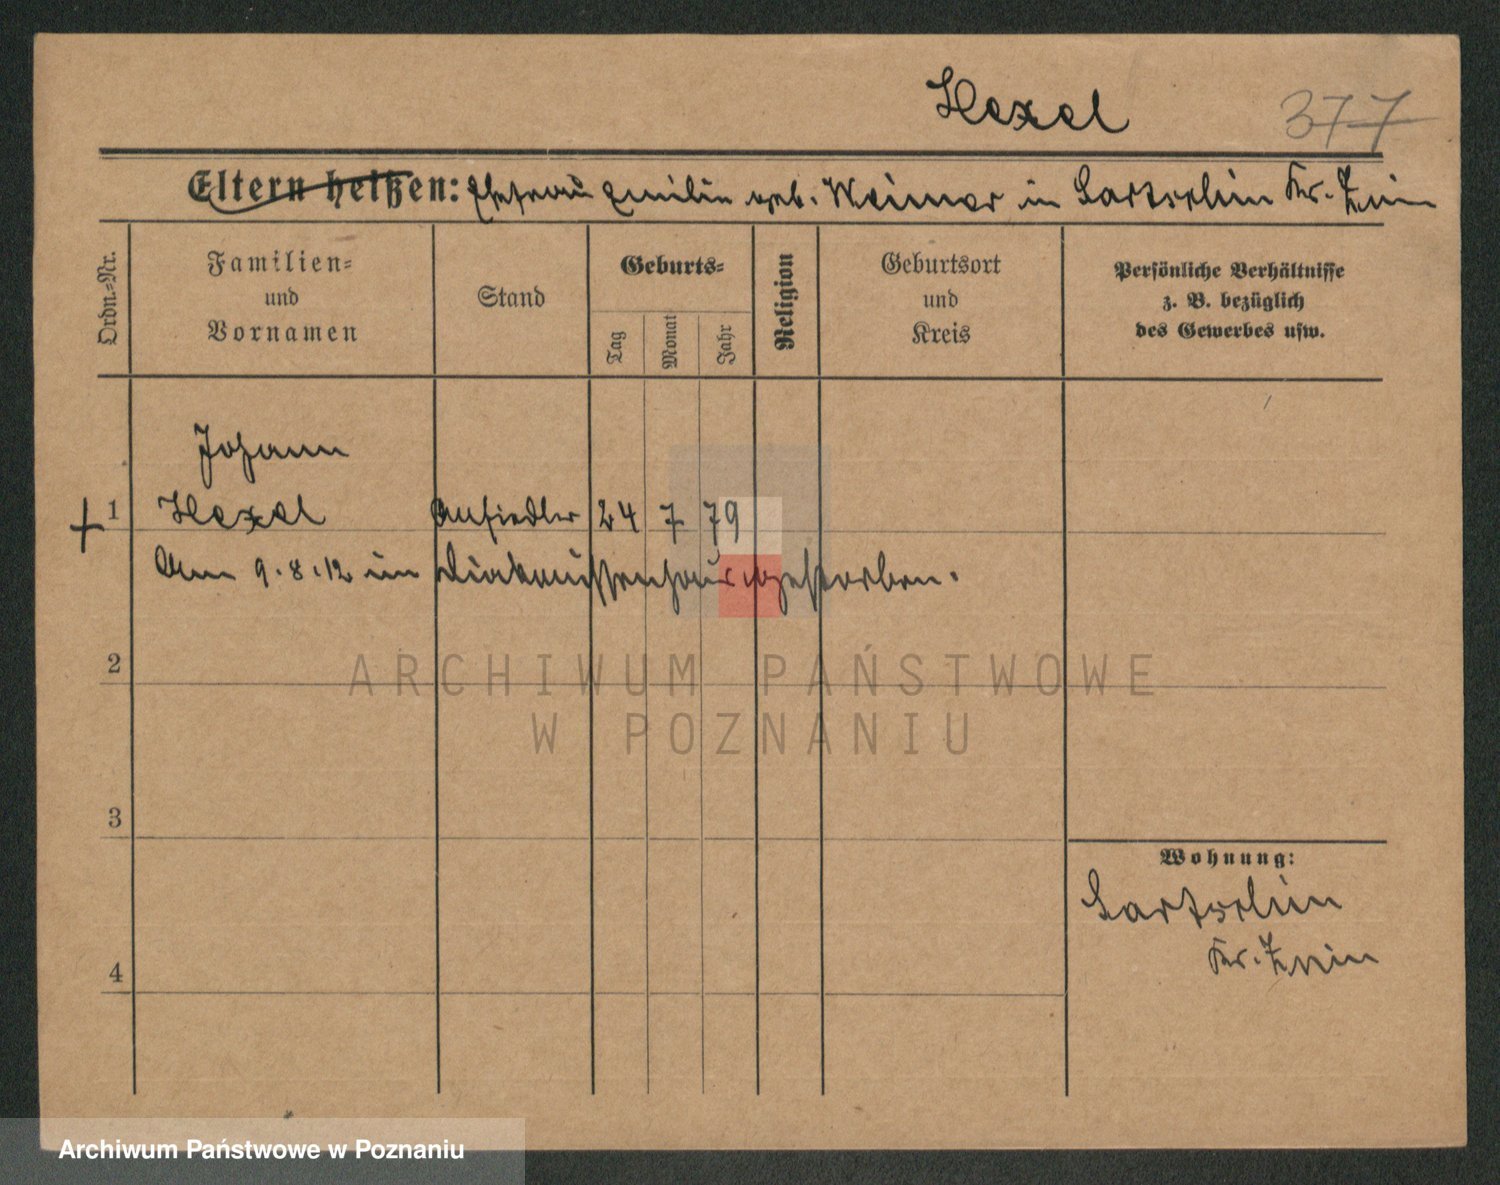 Hexel 377
Eltern heißen: Ehefrau Emilie geb. Weimer in Kr. Znin
Ordn.-Nr.
Familien-
und
Vornamen
Stand
Geburts-
Tag
Monat
Jahr
Religion
Geburtsort
und
Kreis
Persönliche Verhältnisse
z. B. bezüglich
des Gewerbes usw.
Johann
+ 1 Hexel Ansiedler 24 7 79
Am 9.8.12 im Diakonissenhaus gestorben.
2
ARCHIWUM PAŃSTWOWE
W POZNANIU
3
Wohnung:
Kr. Znin
4
Archiwum Państwowe w Poznaniu